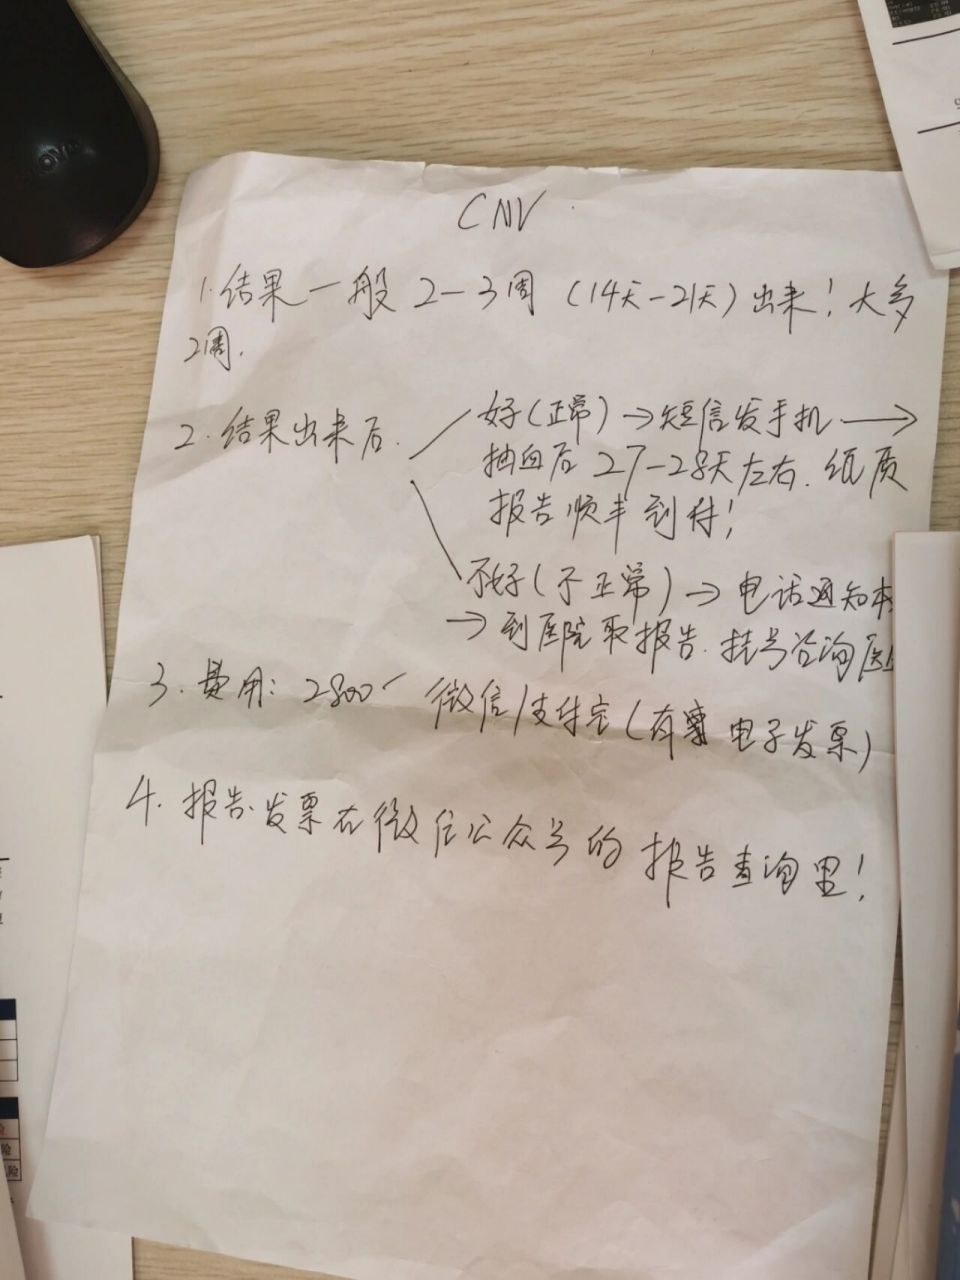 CNV
1. 结果一般 2-3周 (14天-21天) 出来! 大多
2周.
2. 结果出来后.
好(正常) → 短信发手机 →
抽血后 27-28天左右. 纸质
报告顺丰到付!
不好(不正常) → 电话通知本
→ 到医院取报告. 挂号咨询医
3. 费用: 2800 微信/支付宝 (有 电子发票)
4. 报告.发票在微信公众号的 报告查询里!
险
险